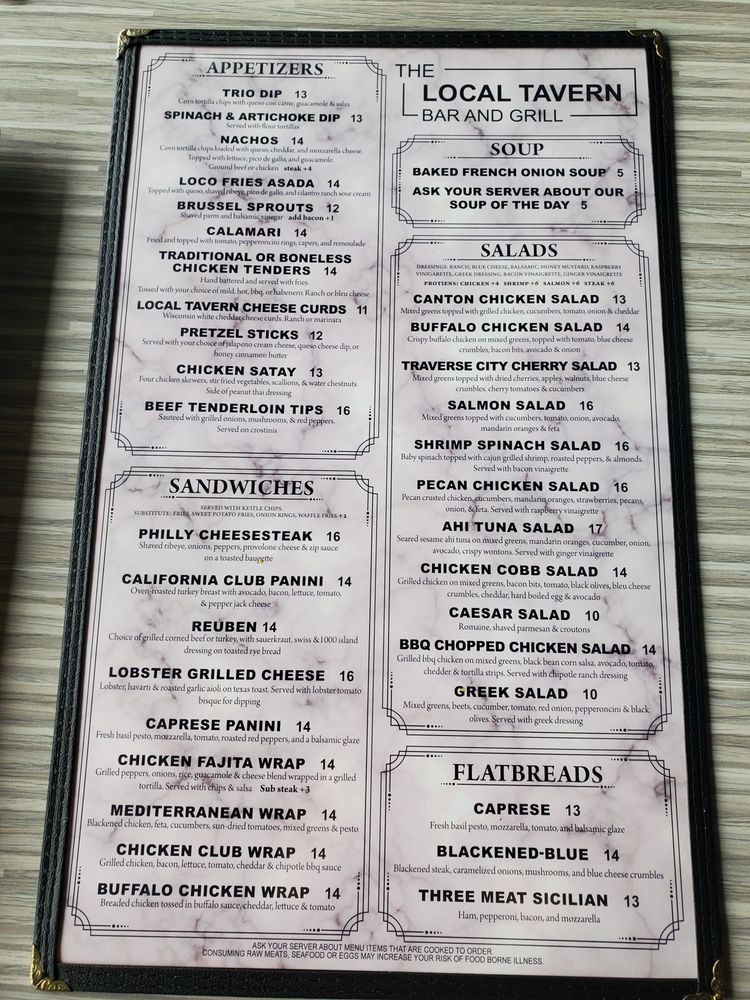 APPETIZERS
TRIO DIP 13
Corn tortilla chips with queso con carne, guacamole & salsa
SPINACH & ARTICHOKE DIP 13
Served with flour tortillas
NACHOS 14
Corn tortilla chips loaded with queso, cheddar, and mozzarella cheese.
Topped with lettuce, pico de gallo, and guacamole.
Ground beef or chicken steak +4
LOCO FRIES ASADA 14
Topped with queso, shaved ribeye, pico de gallo, and cilantro ranch sour cream
BRUSSEL SPROUTS 12
Shaved parm and balsamic vinegar add bacon +1
CALAMARI 14
Fried and topped with tomato, pepperoncini rings, capers, and remoulade
TRADITIONAL OR BONELESS
CHICKEN TENDERS 14
Hand battered and served with fries
Tossed with your choice of mild, hot, bbq, or habenero. Ranch or bleu cheese
LOCAL TAVERN CHEESE CURDS 11
Wisconsin white cheddar cheese curds. Ranch or marinara
PRETZEL STICKS 12
Served with your choice of jalapeno cream cheese, queso cheese dip, or
honey cinnamon butter
CHICKEN SATAY 13
Four chicken skewers, stir fried vegetables, scallions, & water chestnuts.
Side of peanut thai dressing
BEEF TENDERLOIN TIPS 16
Sauteed with grilled onions, mushrooms, & red peppers.
Served on crostinis
SANDWICHES
SERVED WITH KETTLE CHIPS.
SUBSTITUTE: FRIES, SWEET POTATO FRIES, ONION RINGS, WAFFLE FRIES +2
PHILLY CHEESESTEAK 16
Shaved ribeye, onions, peppers, provolone cheese & zip sauce
on a toasted baugette
CALIFORNIA CLUB PANINI 14
Oven-roasted turkey breast with avocado, bacon, lettuce, tomato,
& pepper jack cheese
REUBEN 14
Choice of grilled corned beef or turkey, with sauerkraut, swiss &1000 island
dressing on toasted rye bread
LOBSTER GRILLED CHEESE 16
Lobster, havarti & roasted garlic aioli on texas toast. Served with lobster tomato
bisque for dipping
CAPRESE PANINI 14
Fresh basil pesto, mozzarella, tomato, roasted red peppers, and a balsamic glaze
CHICKEN FAJITA WRAP 14
Grilled peppers, onions, rice, guacamole & cheese blend wrapped in a grilled
tortilla. Served with chips & salsa Sub steak +3
MEDITERRANEAN WRAP 14
Blackened chicken, feta, cucumbers, sun-dried tomatoes, mixed greens & pesto
CHICKEN CLUB WRAP 14
Grilled chicken, bacon, lettuce, tomato, cheddar & chipotle bbq sauce
BUFFALO CHICKEN WRAP 14
Breaded chicken tossed in buffalo sauce, cheddar, lettuce & tomato
THE
LOCAL TAVERN
BAR AND GRILL
SOUP
BAKED FRENCH ONION SOUP 5
ASK YOUR SERVER ABOUT OUR
SOUP OF THE DAY 5
SALADS
DRESSINGS: RANCH, BLUE CHEESE, BALSAMIC, HONEY MUSTARD, RASPBERRY
VINIGARETTE, GREEK DRESSING, BACON VINAIGRETTE, GINGER VINAIGRETTE
PROTIENS: CHICKEN +4 SHRIMP +6 SALMON +6 STEAK +6
CANTON CHICKEN SALAD 13
Mixed greens topped with grilled chicken, cucumbers, tomato, onion & cheddar
BUFFALO CHICKEN SALAD 14
Crispy buffalo chicken on mixed greens, topped with tomato, blue cheese
crumbles, bacon bits, avocado & onion
TRAVERSE CITY CHERRY SALAD 13
Mixed greens topped with dried cherries, apples, walnuts, blue cheese
crumbles, cherry tomatoes & cucumbers
SALMON SALAD 16
Mixed greens topped with cucumbers, tomato, onion, avocado,
mandarin oranges & feta
SHRIMP SPINACH SALAD 16
Baby spinach topped with cajun grilled shrimp, roasted peppers, & almonds.
Served with bacon vinaigrette
PECAN CHICKEN SALAD 16
Pecan crusted chicken, cucumbers, mandarin oranges, strawberries, pecans,
onion, & feta. Served with raspberry vinaigrette
AHI TUNA SALAD 17
Seared sesame ahi tuna on mixed greens, mandarin oranges, cucumber, onion,
avocado, crispy wontons. Served with ginger vinaigrette
CHICKEN COBB SALAD 14
Grilled chicken on mixed greens, bacon bits, tomato, black olives, bleu cheese
crumbles, cheddar, hard boiled egg & avocado
CAESAR SALAD 10
Romaine, shaved parmesan & croutons
BBQ CHOPPED CHICKEN SALAD 14
Grilled bbq chicken on mixed greens, black bean corn salsa, avocado, tomato,
chedder & tortilla strips. Served with chipotle ranch dressing
GREEK SALAD 10
Mixed greens, beets, cucumber, tomato, red onion, pepperoncini & black
olives. Served with greek dressing
FLATBREADS
CAPRESE 13
Fresh basil pesto, mozzarella, tomato, and balsamic glaze
BLACKENED-BLUE 14
Blackened steak, caramelized onions, mushrooms, and blue cheese crumbles
THREE MEAT SICILIAN 13
Ham, pepperoni, bacon, and mozzarella
ASK YOUR SERVER ABOUT MENU ITEMS THAT ARE COOKED TO ORDER.
CONSUMING RAW MEATS, SEAFOOD OR EGGS MAY INCREASE YOUR RISK OF FOOD BORNE ILLNESS.